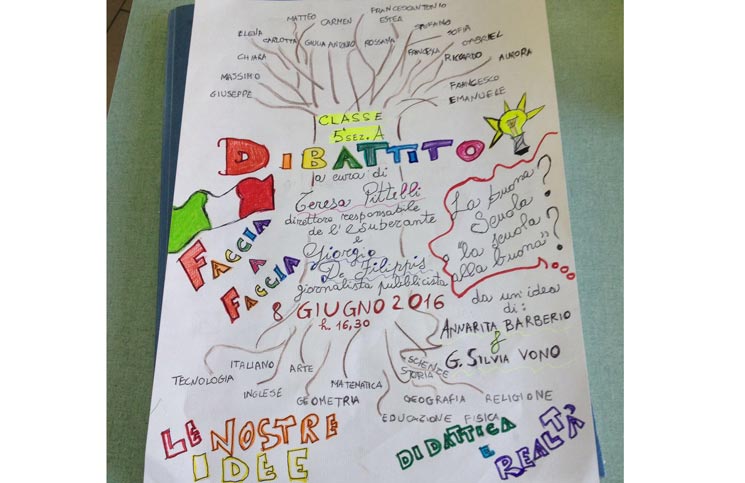 FRANCESCANTONIO
MATTEO
CARMEN
STEFANO
ELENA
SOFIA
CARLOTTA
GIULIA
ROSSANA
FRANCESCA
GABRIEL
CHIARA
RICCARDO
AURORA
MASSIMO
FRANCESCO
GIUSEPPE
EMANUELE
CLASSE
5ª SEZ. A
DIBATTITO
a cura di
Teresa Pittelli
direttore responsabile
de l'eSuperante
e
Giorgio
De Filippis
giornalista pubblicista
8 GIUGNO 2016
h. 16,30
FACCIA
A
FACCIA
La buona
Scuola?
o "la scuola
alla buona"?
da un'idea
di:
ANNARITA BARBERIO
&
G. SILVIA VONO
TECNOLOGIA
ITALIANO
INGLESE
ARTE
GEOMETRIA
MATEMATICA
SCIENZE
STORIA
GEOGRAFIA
RELIGIONE
EDUCAZIONE FISICA
LE NOSTRE
IDEE
DIDATTICA
E
REALTÀ